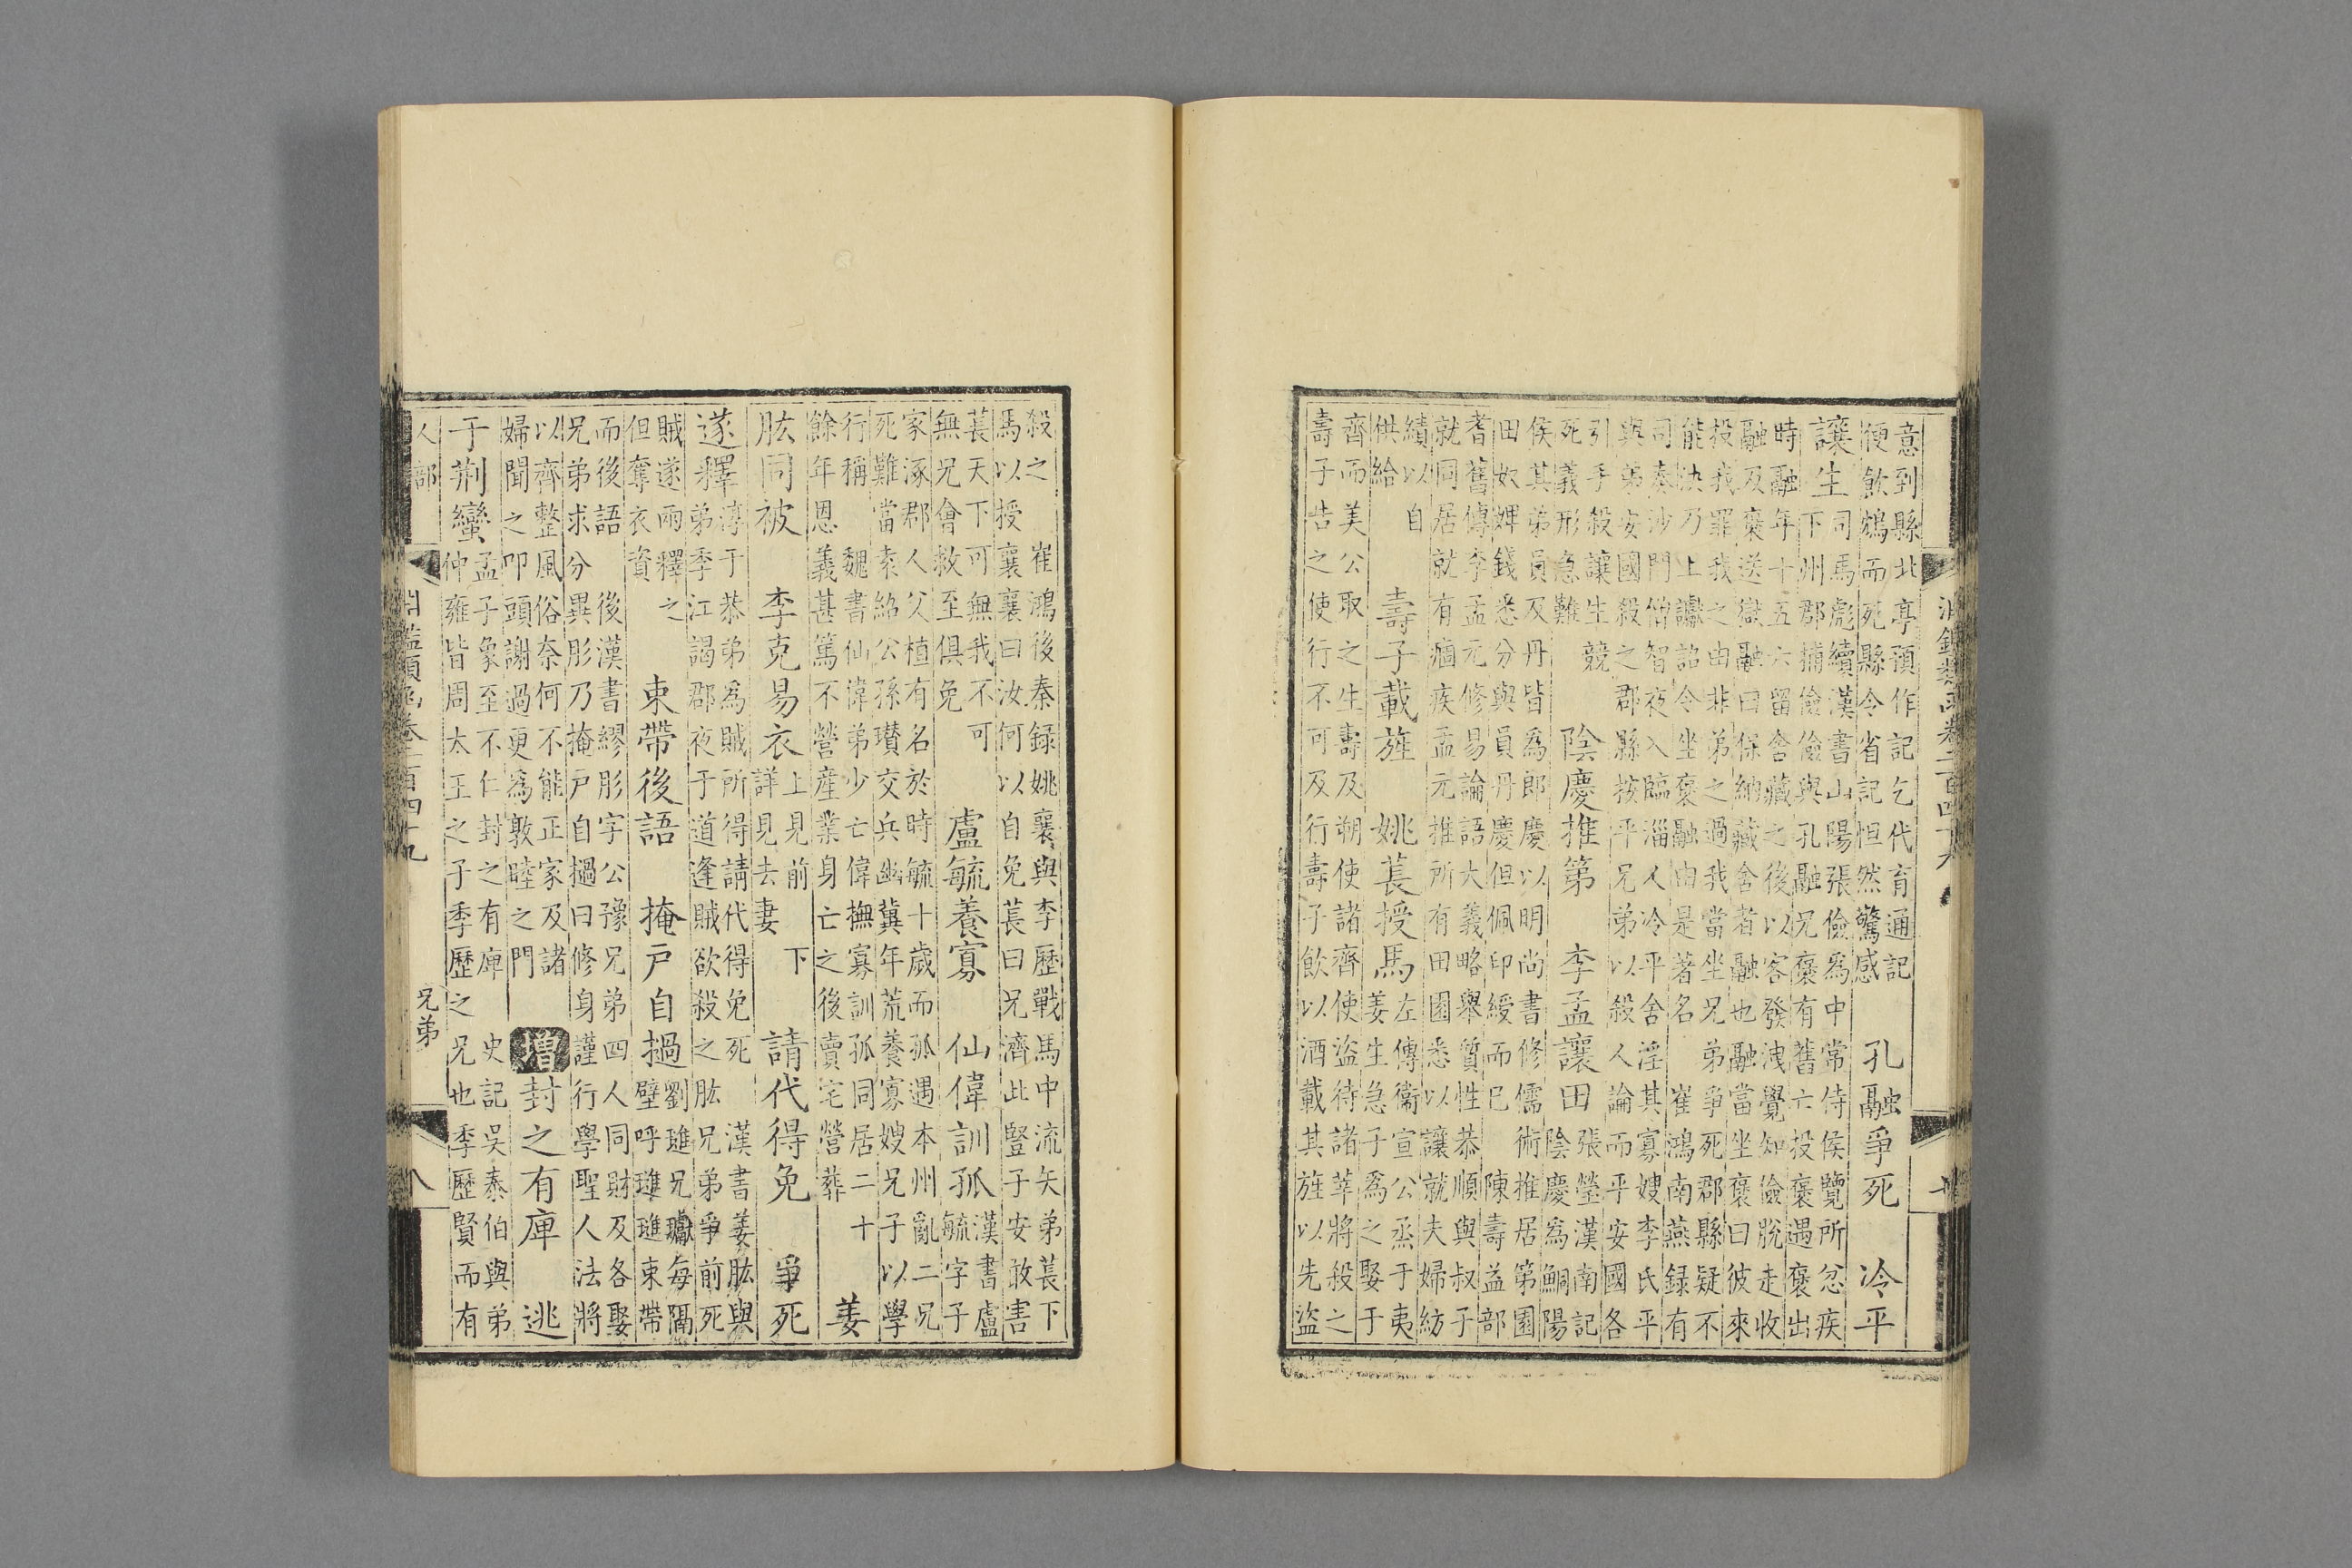 意到縣北亭預作記乞代育通記
便飲鴆而死縣令省記怛然驚感
孔融爭死　冷平
讓生
司馬彪續漢書山陽張儉為中常侍侯覽所忿疾
下州郡捕儉儉與孔融兄褒有舊亡投褒遇褒出
時融年十五六留舍藏之後以客發洩覺知儉脫走收
融及褒送獄融曰保納藏舍者融也融當坐褒曰彼來
投我罪我之由非弟之過我當坐兄弟爭死郡縣疑不
能決乃上讞詔令坐褒融由是著名　崔鴻南燕録有
司奏沙門伯智夜入臨淄人冷平舍淫其寡嫂李氏平
與弟安國殺之郡縣按平兄弟以殺人論而平安國各
引手殺讓生競
死義形急難
陰慶推第　李孟讓田
張瑩漢南記
陰慶為鮦陽
侯其弟員及丹皆為郎慶以明尚書修儒術推居第園
田奴婢錢悉分與員丹慶但佩印綬而已　陳壽益部
耆舊傳李孟元修易論語大義略舉質性恭順與叔子
就同居就有痼疾孟元推所有田園悉以讓就夫婦紡
績以自
供給
壽子載旌　姚萇授馬
左傳衞宣公烝于夷
姜生急子為之娶于
齊而美公取之生壽及朔使諸齊使盜待諸莘將殺之
壽子告之使行不可及行壽子飲以酒載其旌以先盜
殺之　崔鴻後秦録姚襄與李歷戰馬中流矢弟萇下
馬以授襄襄曰汝何以自免萇曰兄濟此豎子安敢害
萇天下可無我不可
無兄會救至俱免
盧毓養寡　仙偉訓孤
漢書盧
毓字子
家涿郡人父植有名於時毓十歲而孤遇本州亂二兄
死難當袁紹公孫瓚交兵幽冀年荒養寡嫂兄子以學
行稱　魏書仙偉弟少亡偉撫寡訓孤同居二十
餘年恩義甚篤不營産業身亡之後賣宅營葬
姜
肱同被　李克易衣
上見前下
詳見去妻
請代得免　爭死
遂釋
淳于恭弟為賊所得請代得免死　漢書姜肱與
弟季江謁郡夜于道逢賊欲殺之肱兄弟爭前死
賊遂兩釋之
但奪衣資
束帶後語　掩戸自撾
劉璡兄瓛每隔
壁呼璡璡束帶
而後語　後漢書繆肜字公豫兄弟四人同財及各娶
兄弟求分異肜乃掩戸自撾曰修身謹行學聖人法將
以齊整風俗奈何不能正家及諸
婦聞之叩頭謝過更為敦睦之門
増
封之有庳　逃
于荆蠻
孟子象至不仁封之有庳　史記吳泰伯與弟
仲雍皆周太王之子季歷之兄也季歷賢而有
人部　淵鑑類函卷二百四十九　兄弟　八